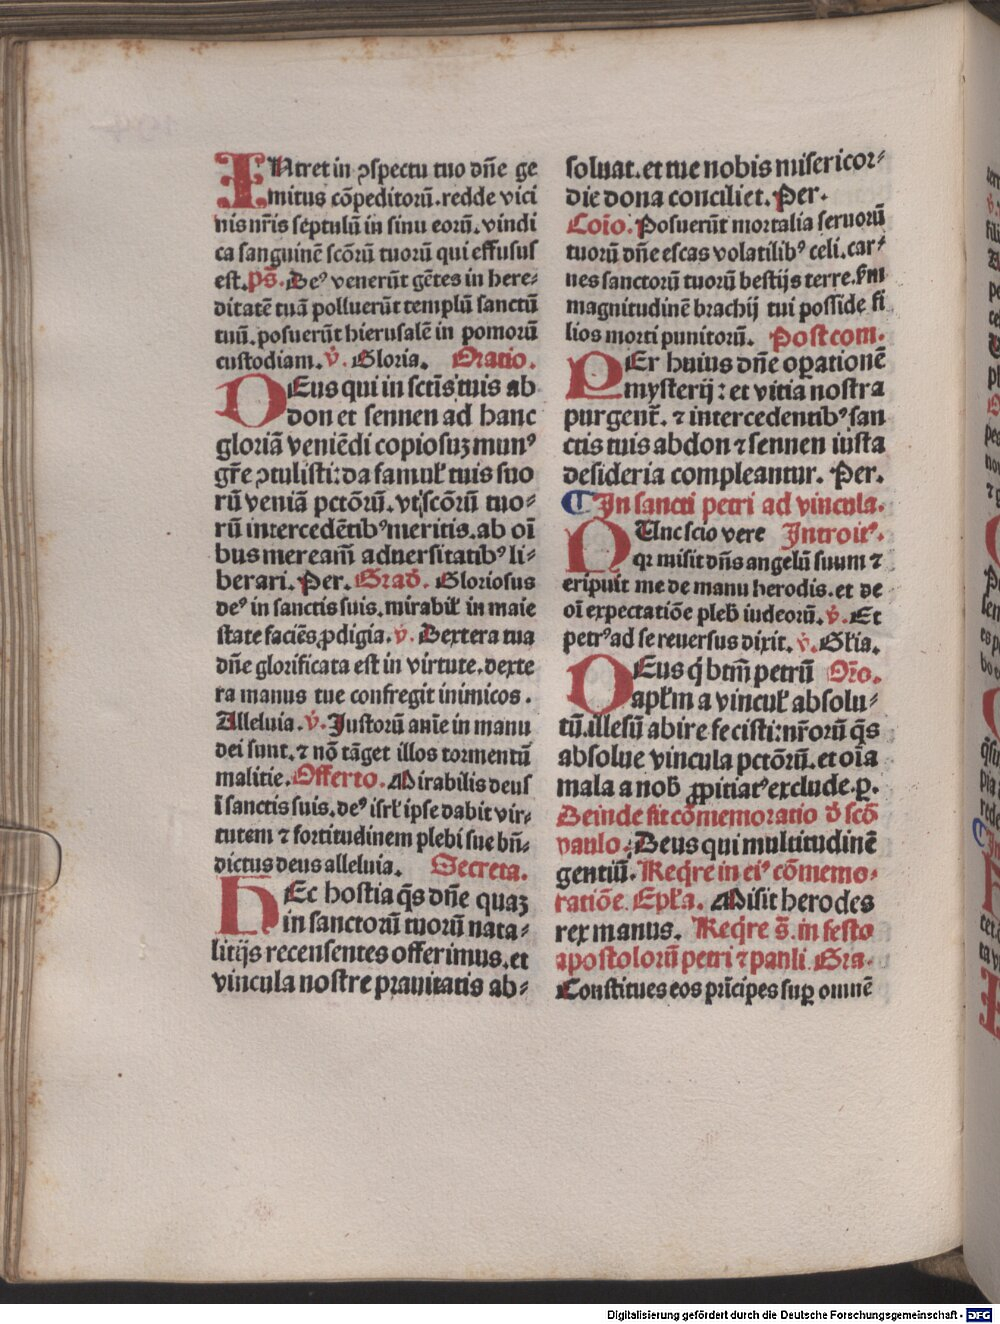 INtret in ↄspectu tuo dn̄e ge
mitus cōpeditorū. redde vici
nis nr̄is septulū in sinu eorū. vindi
ca sanguinē scōrū tuorū qui effusus
est. ps̄. Deꝰ venerūt gētes in here⸗
ditatē tuā polluerūt templū sanctū
tuū. posuerūt hierusalē in pomorū
custodiam. v̄. Gloria. Oratio.
DEus qui in sctīs tuis ab
don et sennen ad hanc
gloriā veniēdi copiosuꝫ munꝰ
gr̄e ↄtulisti: da famuł tuis suo
rū veniā pctōrū. vt scōrū tuo⸗
rū intercedētibꝰ meritis. ab oī
bus meream̄ aduersitatibꝰ li⸗
berari. Per. Grad̄. Gloriosus
deꝰ in sanctis suis. mirabił in maie
state faciēs ꝓdigia. v̄. Dextera tua
dn̄e glorificata est in virtute. dexte
ra manus tue confregit inimicos.
Alleluia. v̄. Iustorū anīe in manu
dei sunt. ⁊ nō tāget illos tormentū
malitie. Offerto. Mirabilis deus
ī sanctis suis. deꝰ isrł ipse dabit vir⸗
tutem ⁊ fortitudinem plebi sue bn̄⸗
dictus deus alleluia. Secreta.
HEc hostia q̄s dn̄e quaꝫ
in sanctorū tuorū nata⸗
litijs recensentes offerimus. et
vincula nostre prauitatis ab⸗
soluat. et tue nobis misericor⸗
die dona conciliet. Per.
Coīo. Posuerūt mortalia seruorū
tuorū dn̄e escas volatilibꝰ celi. car⸗
nes sanctorū tuorū bestijs terre. s̄m
magnitudinē brachij tui posside fi
lios morti punitorū. Postcom.
PEr huius dn̄e oꝑationē
mysterij: et vitia nostra
purgent̄. ⁊ intercedentibꝰ san
ctis tuis abdon ⁊ sennen iusta
desideria compleantur. Per.
In sancti petri ad vincula.
NUnc scio vere Introitꝰ.
qꝛ misit dn̄s angelū suum ⁊
eripuit me de manu herodis. et de
oī expectatiōe pleb̄ iudeorū. v̄. Et
petrꝰ ad se reuersus dixit. v̄. Głia.
DEus q̄ btm̄ petrū Or̄o.
apłm a vincuł absolu⸗
tū. illesū abire fecisti: nr̄orū q̄s
absolue vincula pctōrū. et oīa
mala a nob̄ ꝓpitiatꝰ exclude. ꝑ.
Deinde fit cōmemoratio d̄ scō
paulo. Deus qui multitudinē
gentiū. Req̄re in eiꝰ cōmemo⸗
ratiōe. Epła. Misit herodes
rex manus. Req̄re s̄. in festo
apostolorū petri ⁊ pauli. Gra.
Constitues eos prīcipes suꝑ omnē
Digitalisierung gefördert durch die Deutsche Forschungsgemeinschaft - DFG